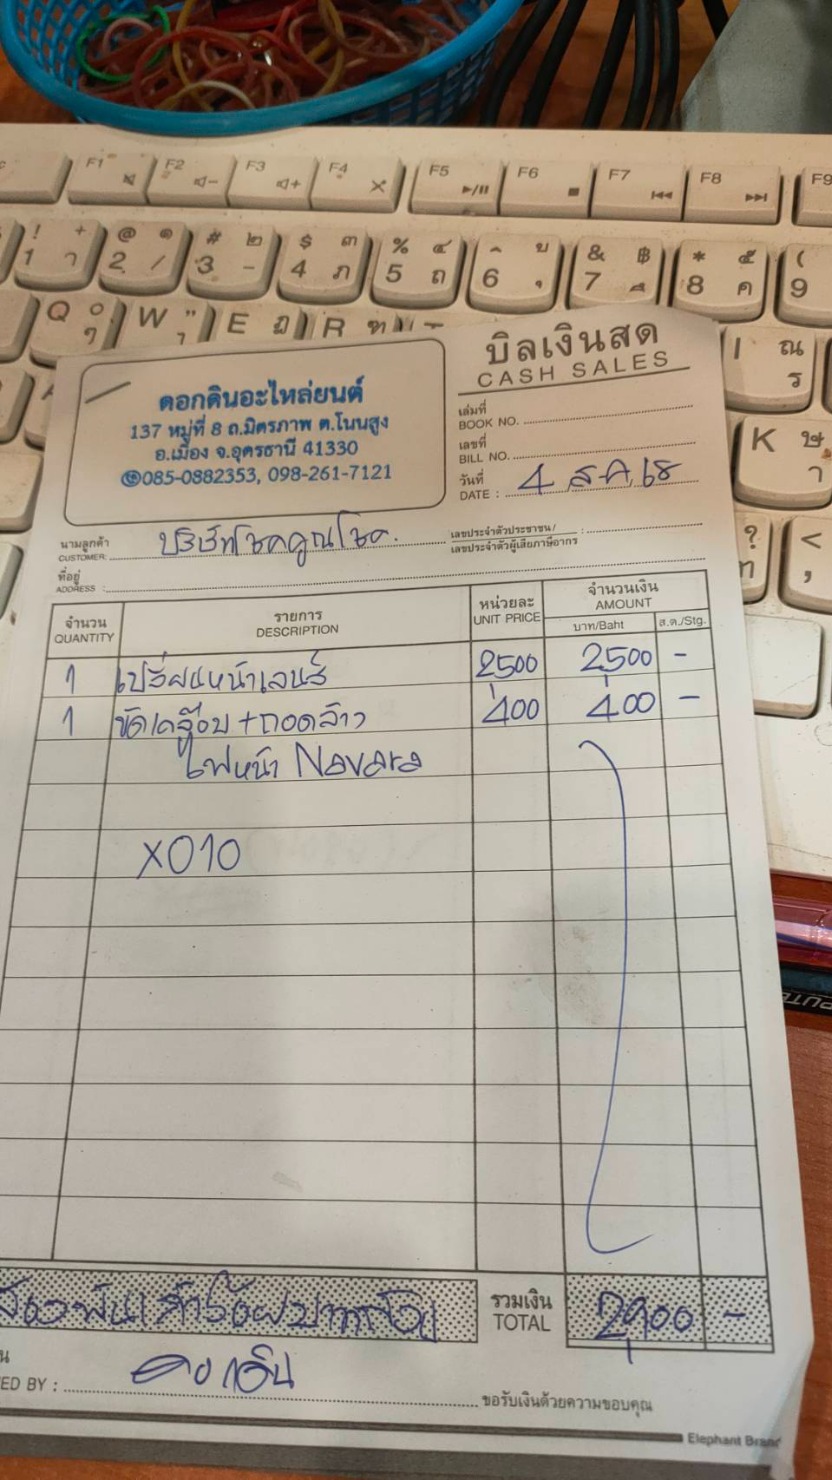 F1 F2 F3 F4 F5 F6 F7 F8 F9
! + 1 @ ๑ 2 / # ๒ 3 - $ ๓ 4 ภ % ๔ 5 ถ 6 & ฿ 7 * ๕ 8 ค ( 9
Q ๐ ๆ W " E ฎ R
I ณ ร
K ษ า
? ท < ,
บิลเงินสด
CASH SALES
ดอกดินอะไหล่ยนต์
137 หมู่ที่ 8 ถ.มิตรภาพ ต.โนนสูง
อ.เมือง จ.อุดรธานี 41330
085-0882353, 098-261-7121
เล่มที่
BOOK NO.
เลขที่
BILL NO.
วันที่
DATE : 4 ส.ค. 68
นามลูกค้า
CUSTOMER: บริษัทโชคคูณโชค.
เลขประจำตัวประชาชน/
เลขประจำตัวผู้เสียภาษีอากร :
ที่อยู่
ADDRESS :
จำนวน รายการ หน่วยละ จำนวนเงิน
QUANTITY DESCRIPTION UNIT PRICE AMOUNT
บาท/Baht ส.ต./Stg.
1 เปลี่ยนหน้าเลนส์ 2500 2,500 -
1 ขัดเคลือบ + ถอดล้าง 400 400 -
ไฟหน้า Navara
X010
สองพันเก้าร้อยบาทถ้วน รวมเงิน 2,900 -
TOTAL
ED BY : ดอกดิน
ขอรับเงินด้วยความขอบคุณ
Elephant Brand